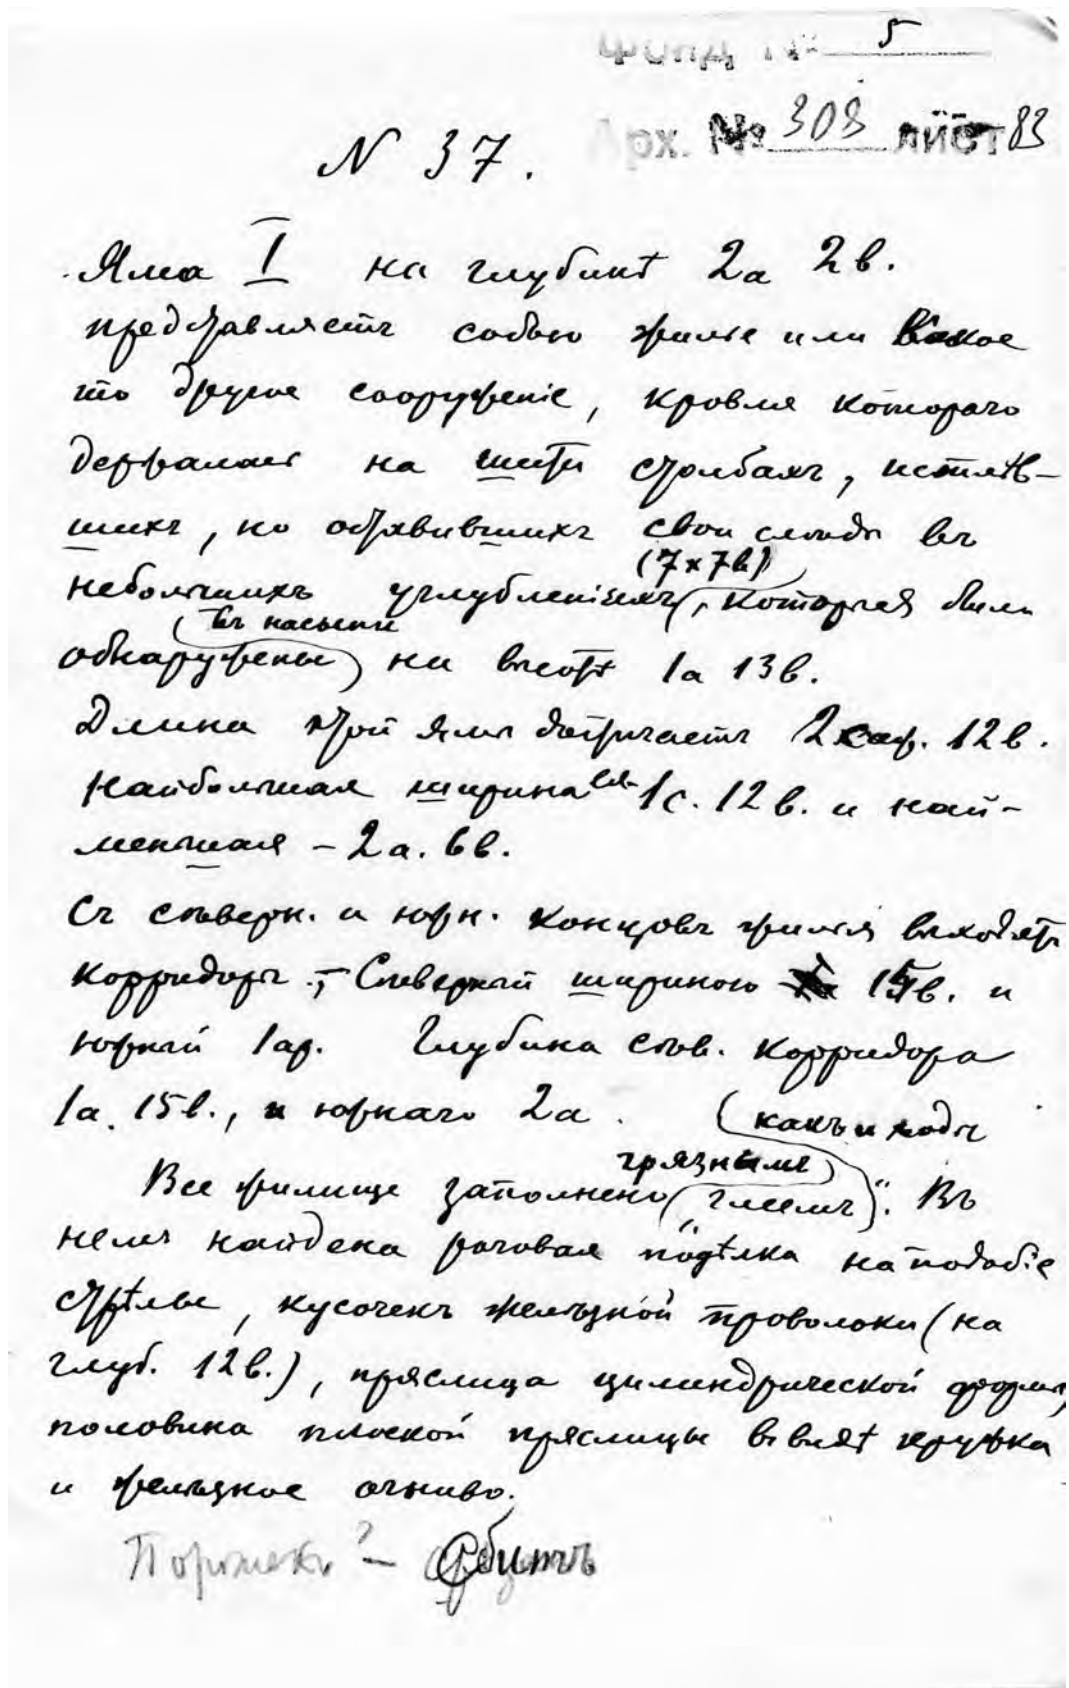 Фонд № 5
Арх. № 308 лист 83
N 37.
Яма I на глубинѣ 2а 2в.
представляетъ собою жилье или какое
то другое сооруженіе, кровля котораго
держалась на шести столбахъ, истлѣв-
шихъ, но оставившихъ свои слѣды въ
(7 х 7в)
небольшихъ углубленіяхъ, которыя были
въ насыпи
обнаружены на высотѣ 1а 13в.
Длина этой ямы достигаетъ 2 саж. 12в.
Наибольшая ширина ея 1с. 12в. и наи-
меньшая – 2а. 6в.
Съ сѣверн. и южн. концовъ жилья выходятъ
корридоры; – Сѣверный шириною 15в. и
южный 1ар. Глубина сѣв. корридора
1а. 15в., и южнаго 2а.
(какъ и ходы
грязнымъ)
Все жилище заполнено "глеемъ". Въ
немъ найдена роговая подѣлка на подобіе
стрѣлы, кусочекъ желѣзной проволоки (на
глуб. 12в.), пряслица цилиндрической формы,
половина плоской пряслицы въ видѣ кружка
и желѣзное огниво.
Порошекъ? –